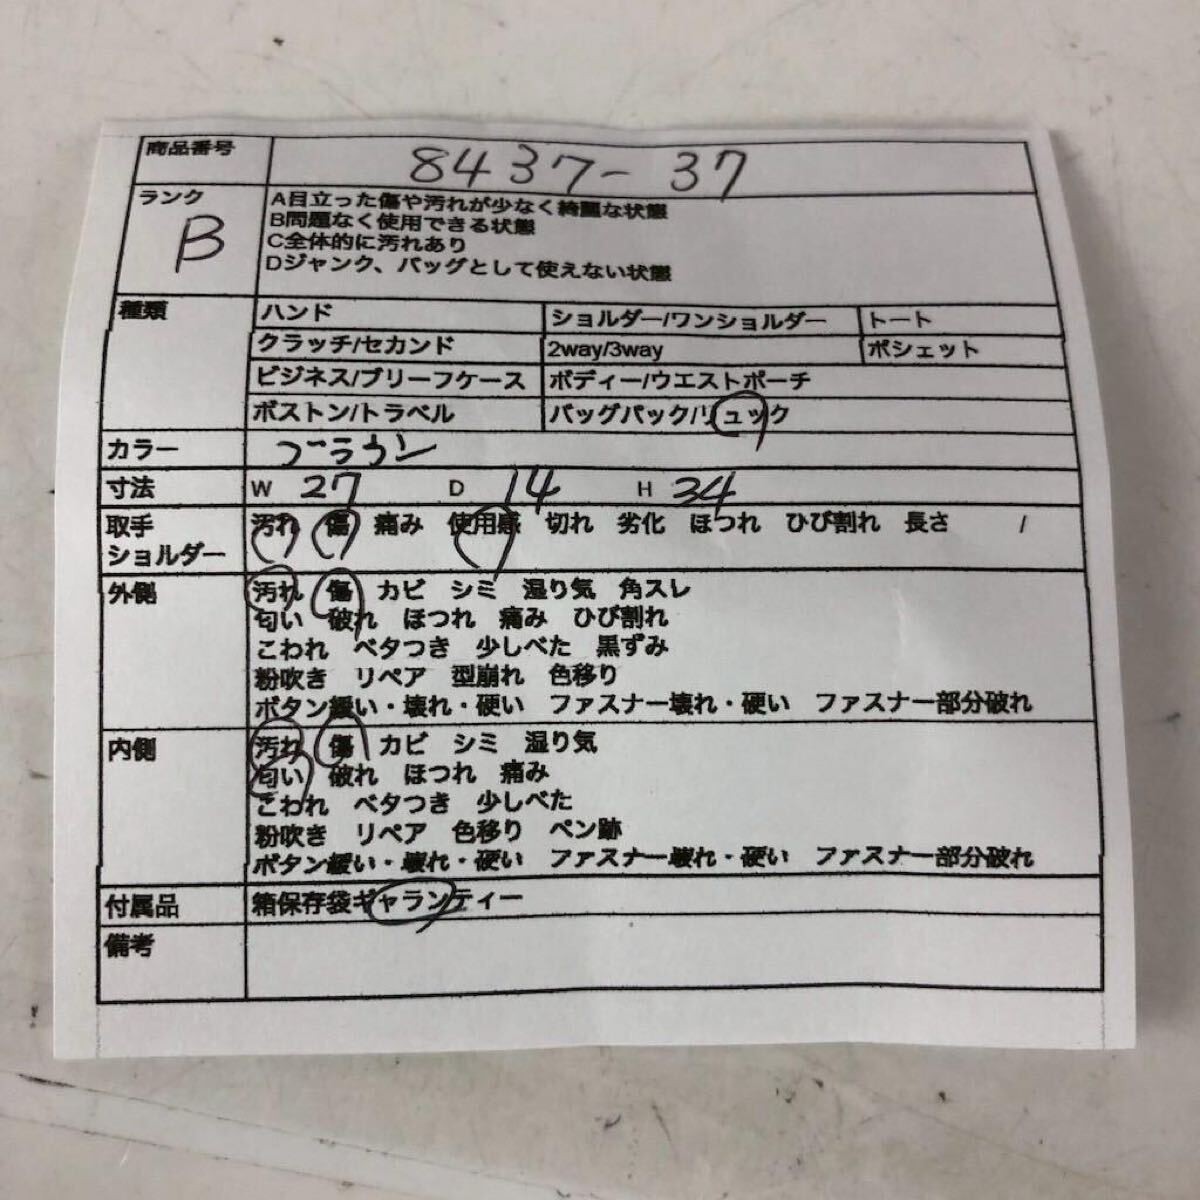 商品番号 8437-37
ランク B
A目立った傷や汚れが少なく綺麗な状態
B問題なく使用できる状態
C全体的に汚れあり
Dジャンク、バッグとして使えない状態
種類 ハンド ショルダー/ワンショルダー トート
クラッチ/セカンド 2way/3way ポシェット
ビジネス/ブリーフケース ボディー/ウエストポーチ
ボストン/トラベル バッグパック/リュック
カラー ブラウン
寸法 W 27 D 14 H 34
取手 汚れ 傷 痛み 使用感 切れ 劣化 ほつれ ひび割れ 長さ /
ショルダー
外側 汚れ 傷 カビ シミ 湿り気 角スレ
匂い 破れ ほつれ 痛み ひび割れ
こわれ ベタつき 少しべた 黒ずみ
粉吹き リペア 型崩れ 色移り
ボタン緩い・壊れ・硬い ファスナー壊れ・硬い ファスナー部分破れ
内側 汚れ 傷 カビ シミ 湿り気
匂い 破れ ほつれ 痛み
こわれ ベタつき 少しべた
粉吹き リペア 色移り ペン跡
ボタン緩い・壊れ・硬い ファスナー壊れ・硬い ファスナー部分破れ
付属品 箱保存袋ギャランティー
備考